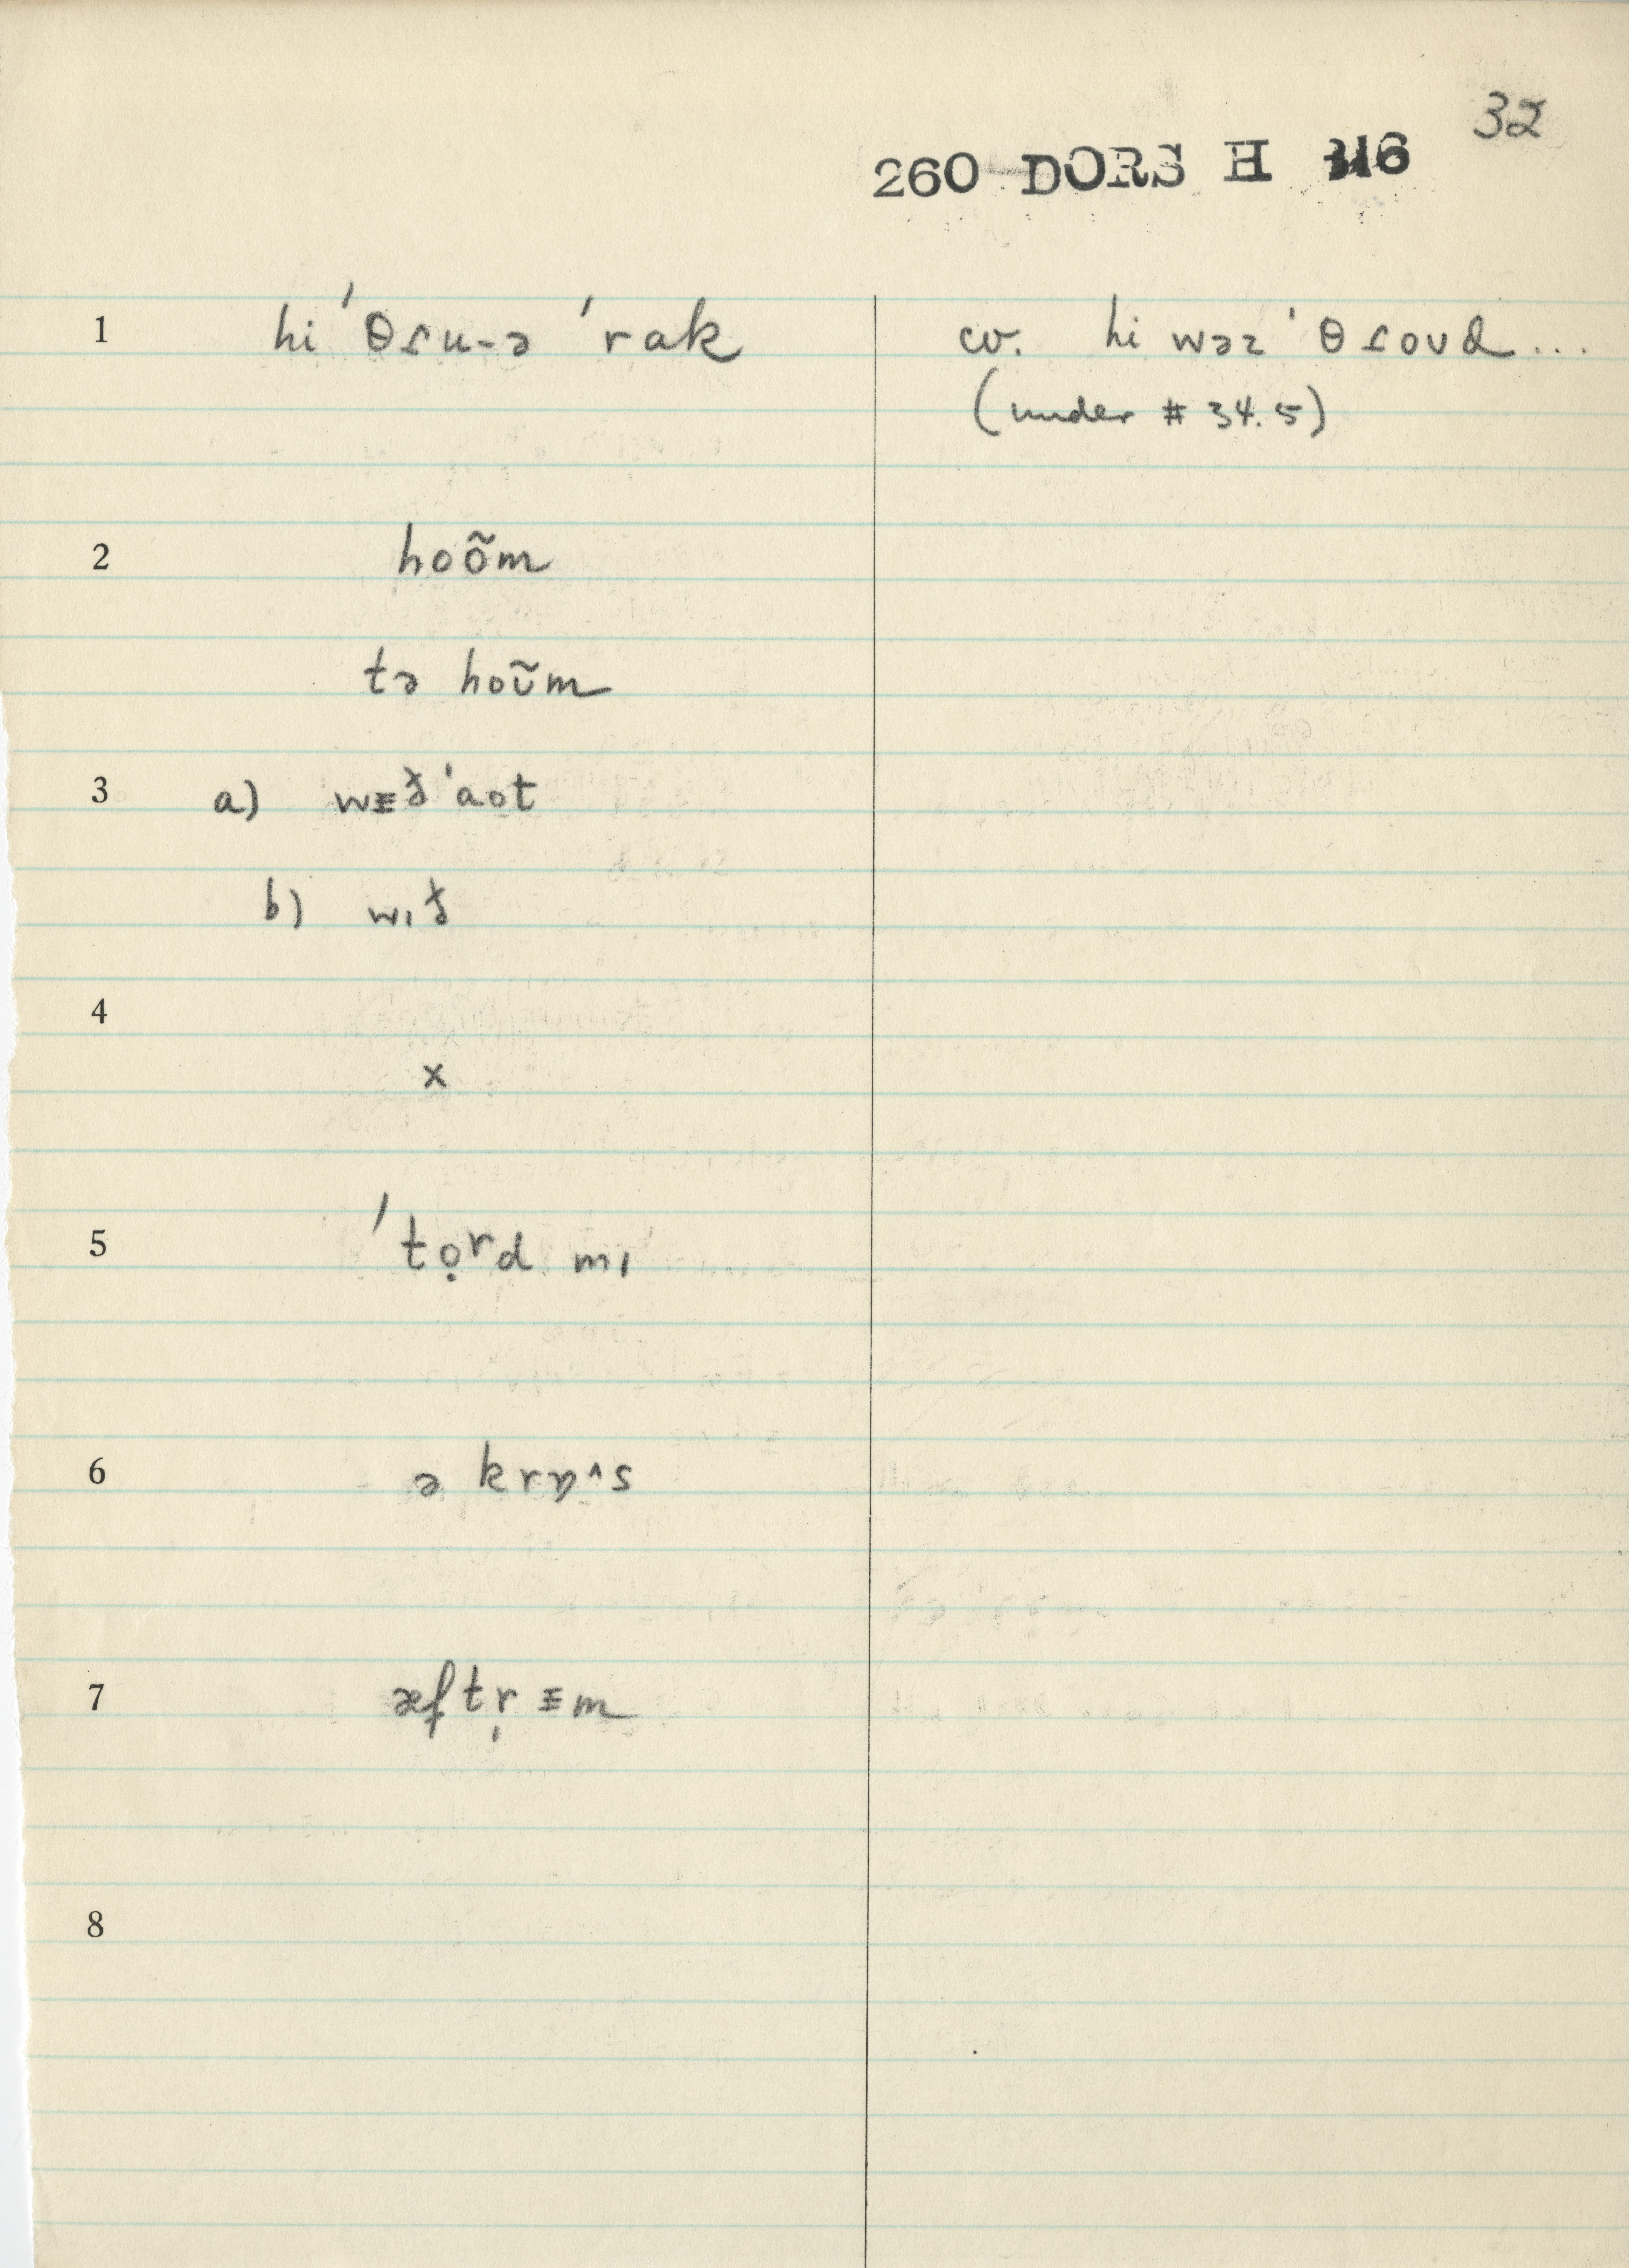 32
260 DORS H 316
1 hi ˈθɾu-ə ˈrak cv. hi wəz ˈθɾoʊd...
(under # 34.5)
2 hoõm
tə hoʊ̃m
3 a) wᵻð ˈaot
b) wɪð
4
x
5 ˈtọrd mɪ
6 ə krɒ^s
7 æftr̩ ᵻm
8